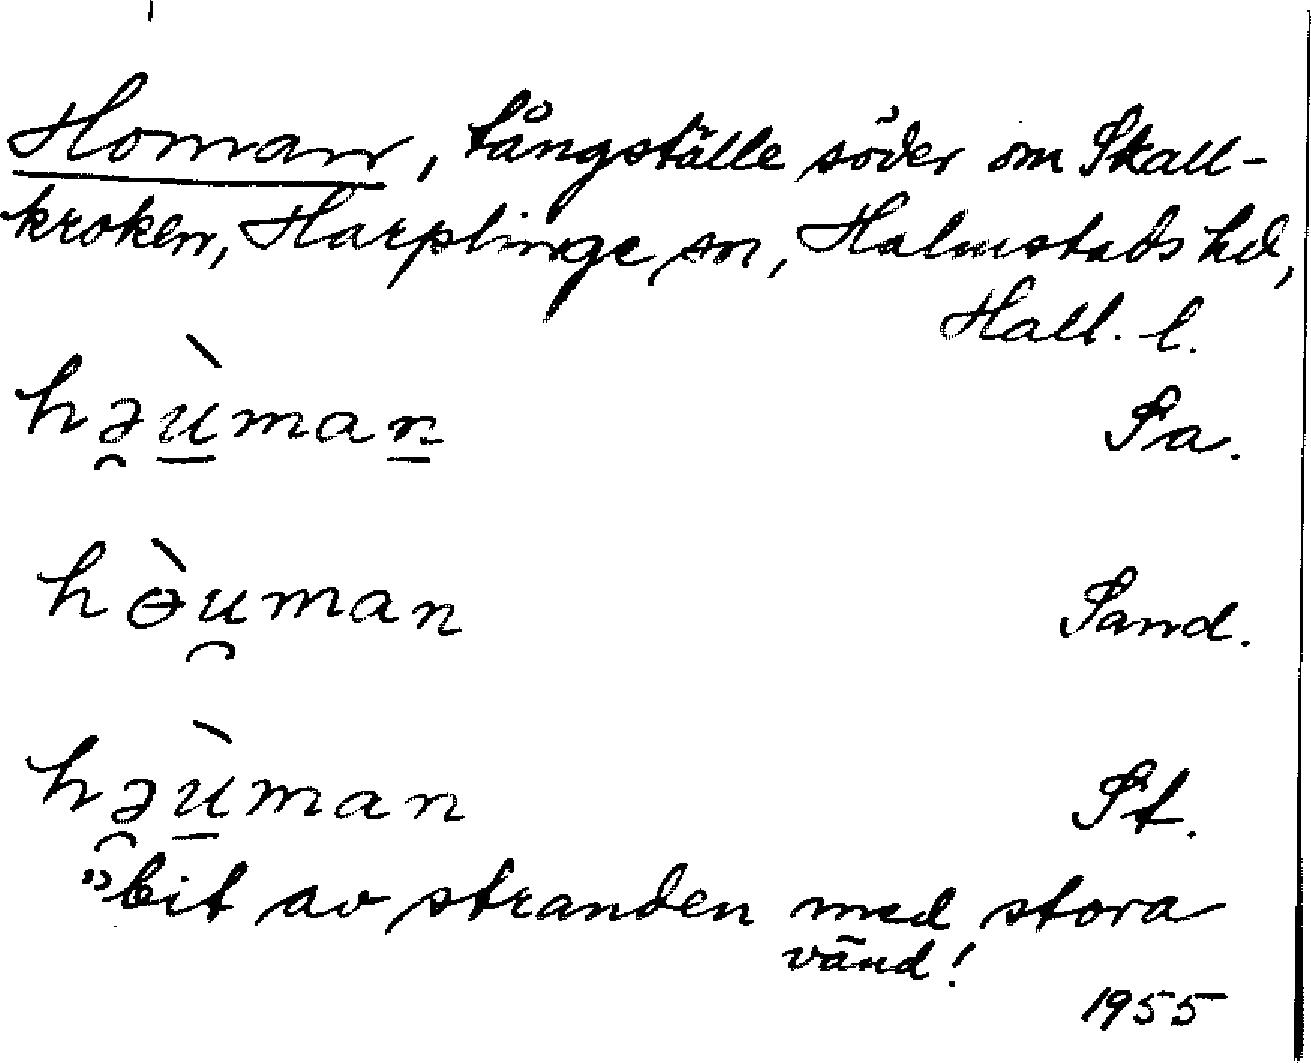 Homan, tångställe söder om Skall-
kroken, Harplinge sn, Halmstads hd,
Hall. l.
hə̯ù̠man̠ Sa.
hɵ̀u̯man Sand.
hə̯ù̠man St.
"bit av stranden med stora
vänd!
1955